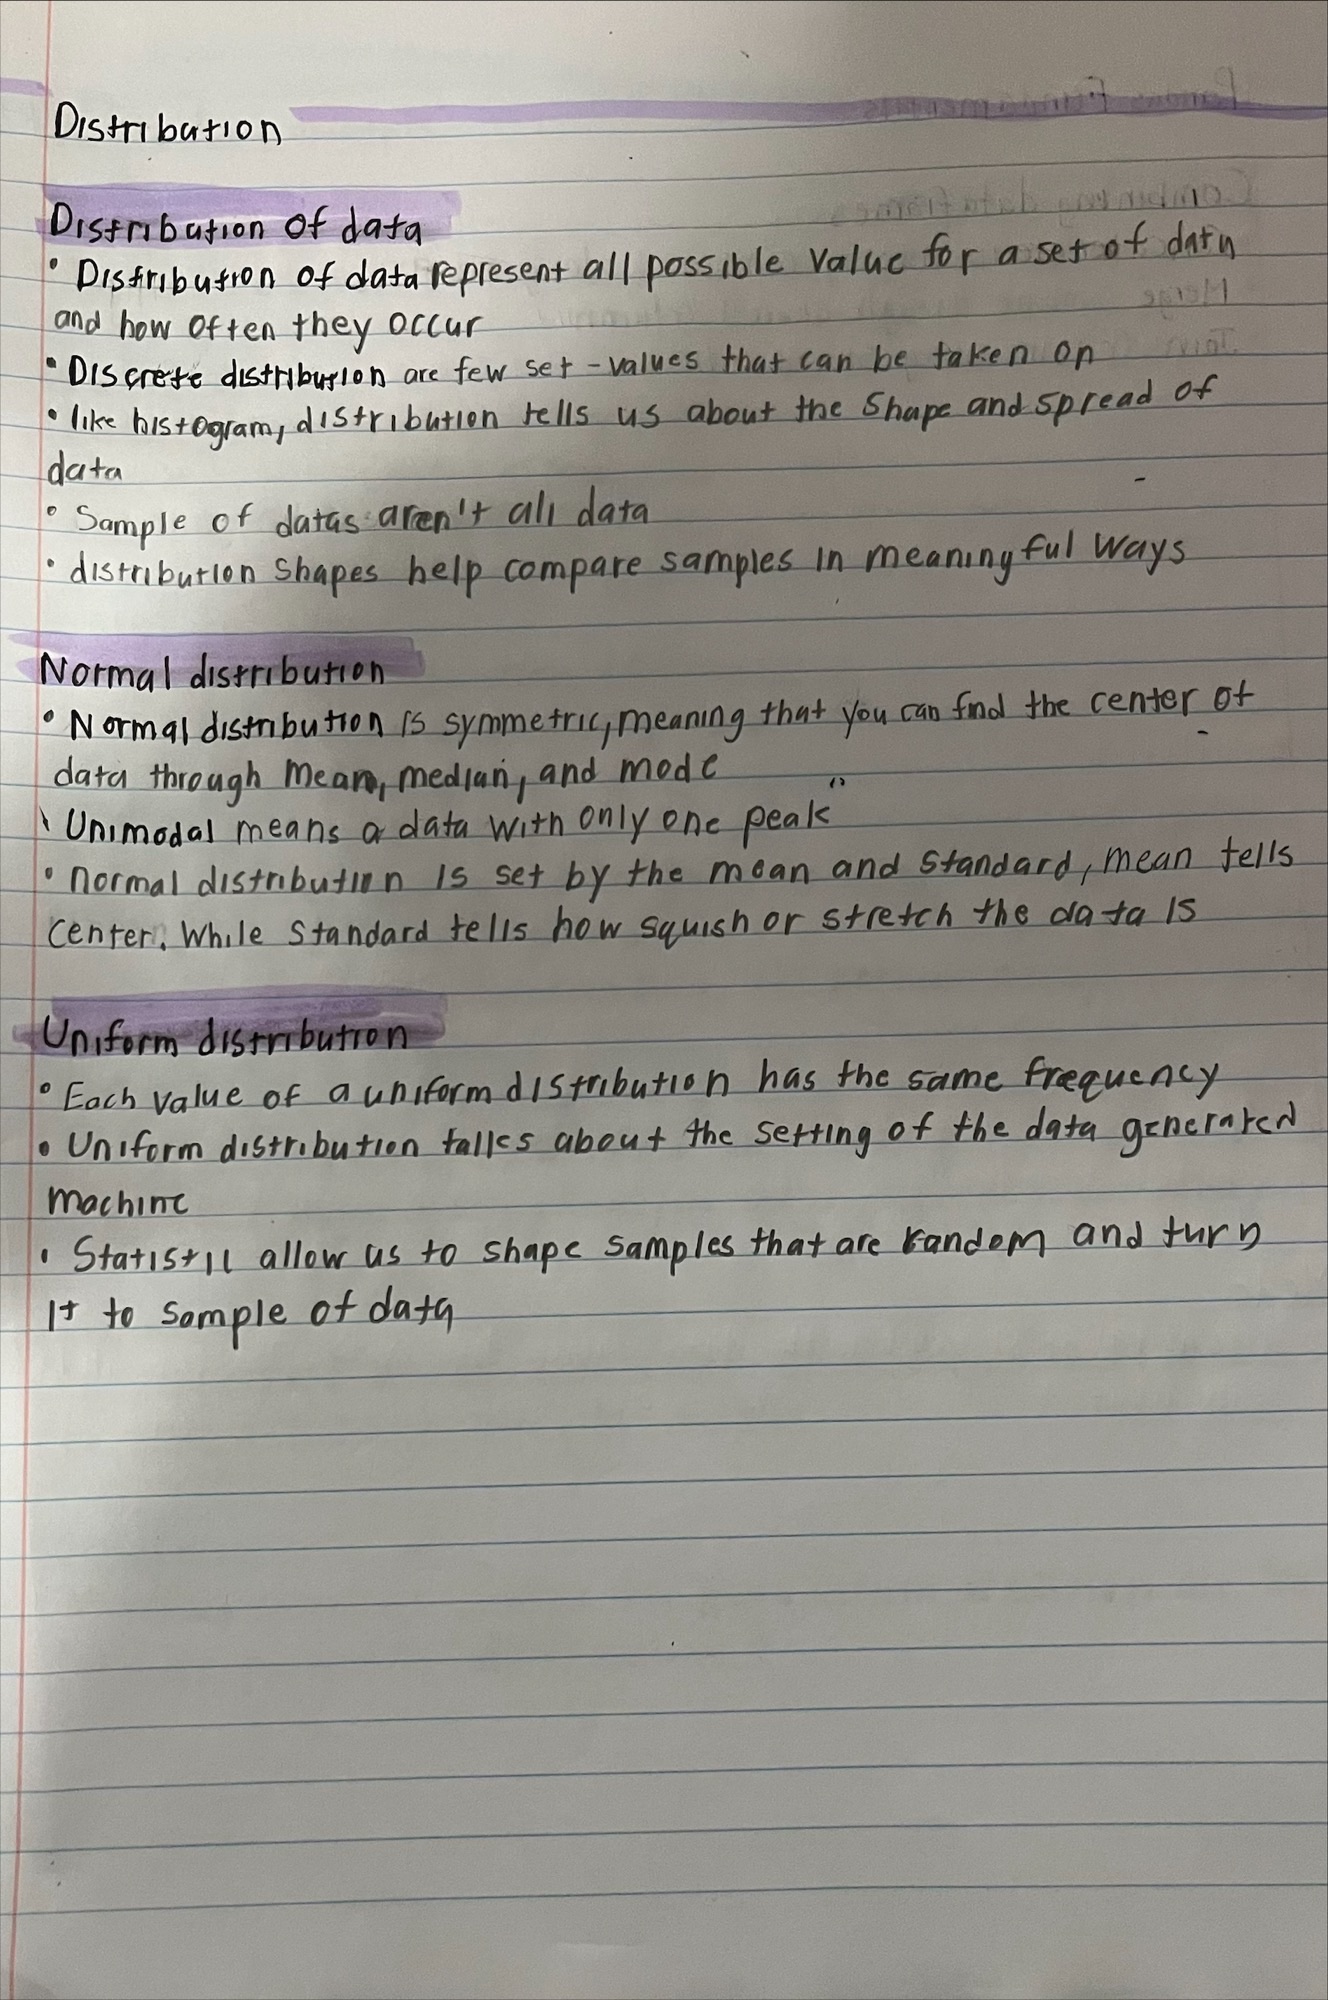 Distribution
Distribution of data
• Distribution of data represent all possible value for a set of data
and how often they occur
• Discrete distribution are few set - values that can be taken on
• like histogram, distribution tells us about the shape and spread of
data
• Sample of datas aren't all data
• distribution shapes help compare samples in meaningful ways
Normal distribution
• Normal distribution is symmetric, meaning that you can find the center of
data through mean, median, and mode
• Unimodal means a data with only one peak
• normal distribution is set by the mean and standard, mean tells
center. While standard tells how squish or stretch the data is
Uniform distribution
• Each value of a uniform distribution has the same frequency
• Uniform distribution talks about the setting of the data generated
machine
• Statistic allow us to shape samples that are random and turn
it to sample of data